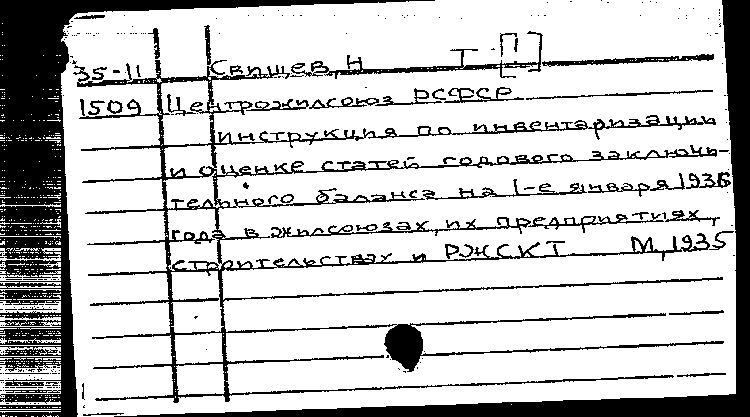 35-11 Свищев, Н Т [1]
1509 Центрожилсоюз РСФСР
инструкция по инвентаризации
и оценке статей годового заключи-
тельного баланса на 1-е января 1936
года в жилсоюзах, их предприятиях,
строительствах и РЖСКТ М, 1935